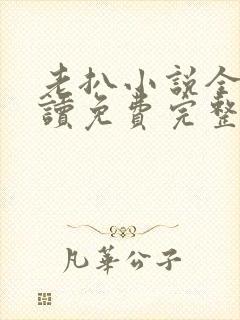 老扒小説全
讀免費完整
凡華公子